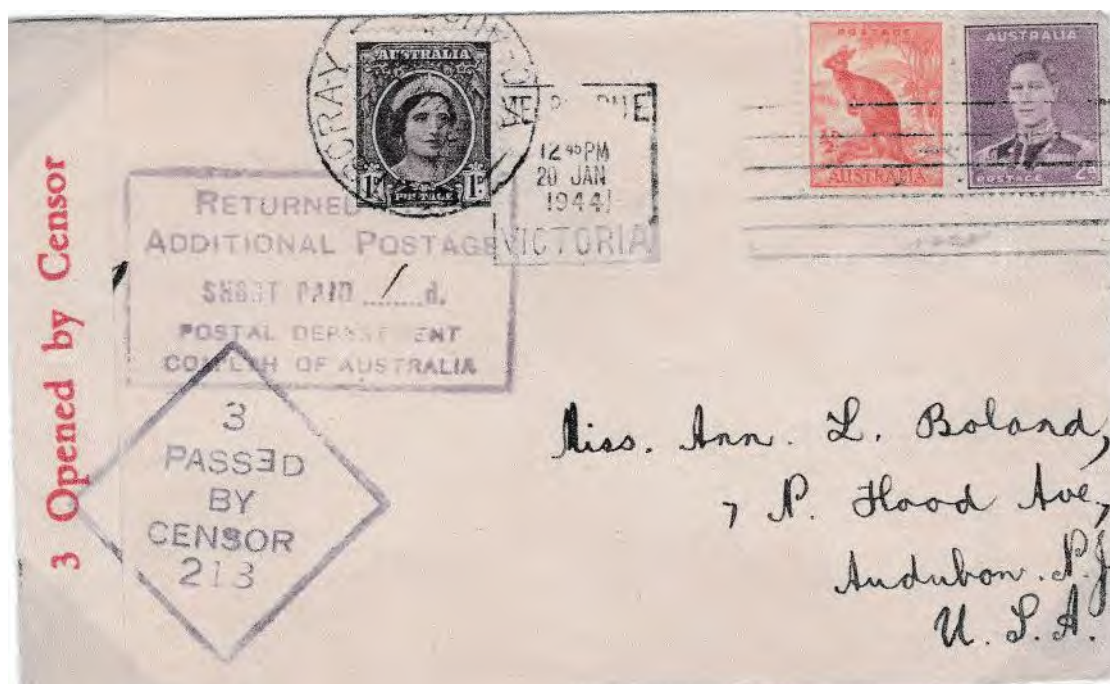 3 Opened by Censor
AUSTRALIA
1D 1D
POSTAGE
12 45 PM
20 JAN
1944
VICTORIA
POSTAGE
½D
AUSTRALIA
AUSTRALIA
POSTAGE 2D
RETURNED
ADDITIONAL POSTAGE
SHORT PAID 1 d.
POSTAL
OF AUSTRALIA
3
PASSED
BY
CENSOR
213
Miss. Ann. L. Boland,
7 N. Hood Ave,
Audubon. N.J
U. S. A.